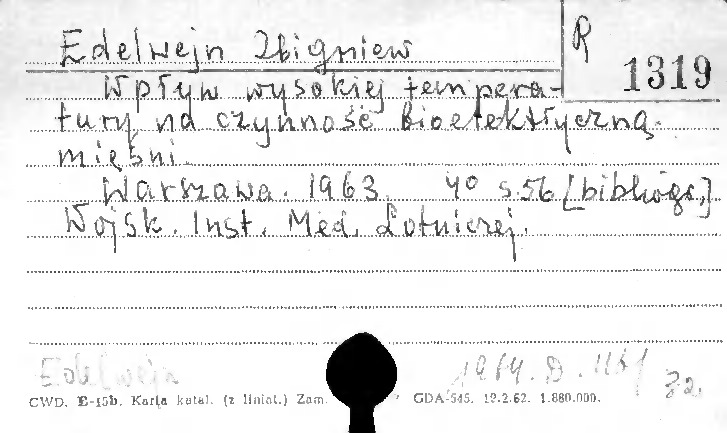 Edelwejn Zbigniew
R
1319
Wpływ wysokiej tempera-
tury na czynność bioelektryczną
mięśni.
Warszawa. 1963. 4° s.56 [bibliogr.]
Wojsk. Inst. Med. Lotniczej.
Edelwejn
1964. D. 1161
CWD. E-15b. Karta katal. (z liniat.) Zam. GDA-545. 12.2.62. 1.880.000.